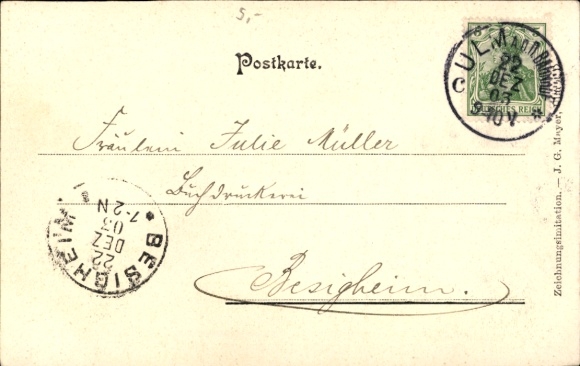 5,-
Postkarte.
ULM A.D. DONAU
22
DEZ
03
9-10V.
C
DEUTSCHES REICH
Fräulein Julie Müller
Buchdruckerei
Besigheim.
BESIGHEIM
22
DEZ
03
1-2N
Zeichnungsimitation. — J. C. Mayer,